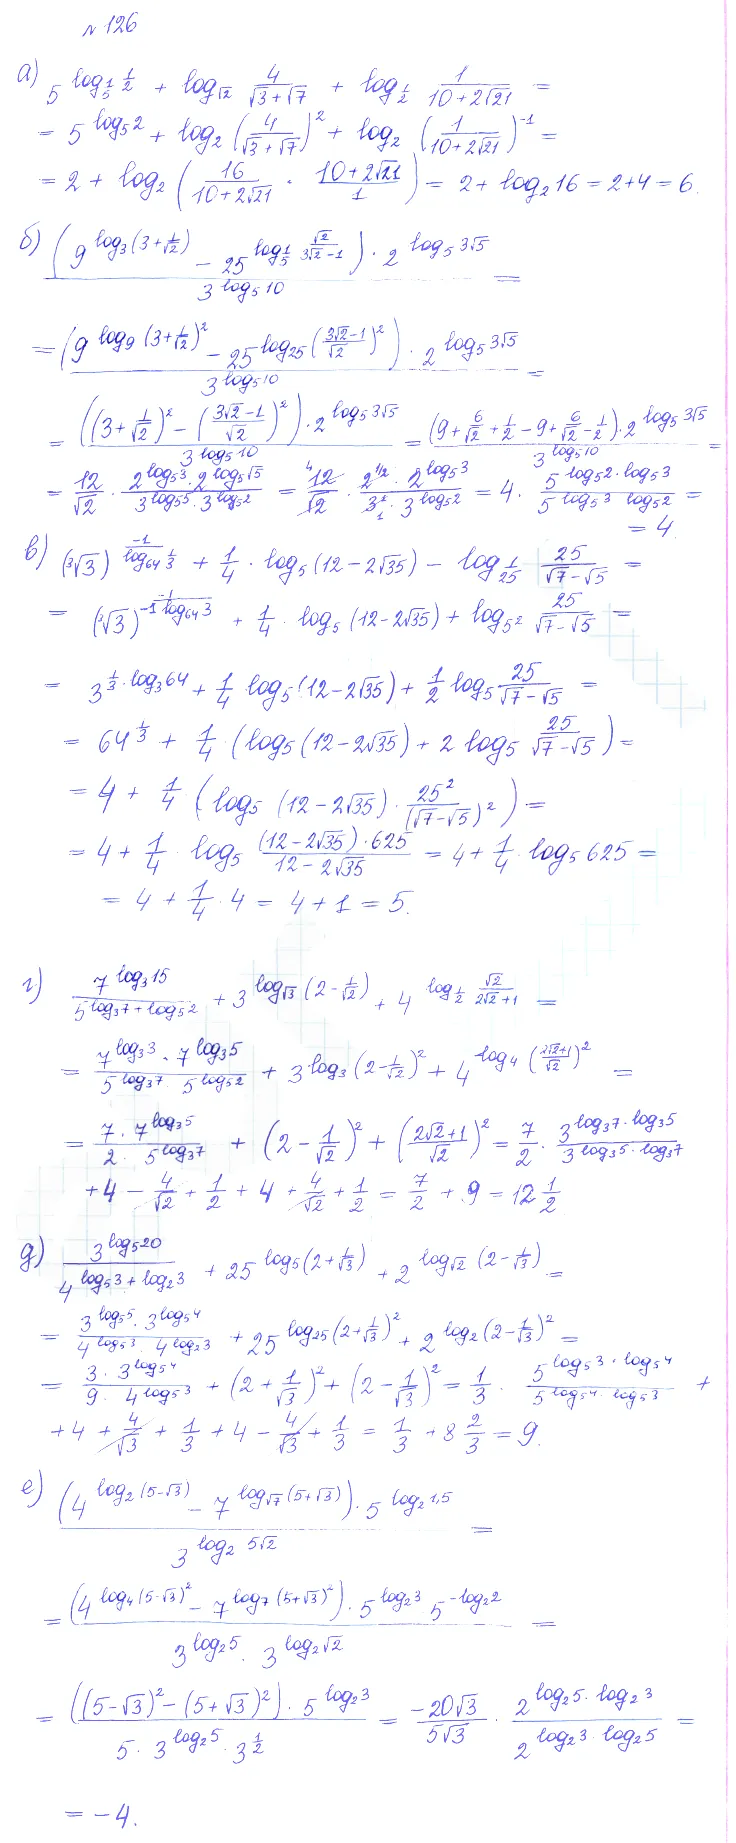 № 126
а) 5^(log_(1/5) 1/2) + log_√2 4/(√3+√7) + log_(1/2) 1/(10+2√21) =
= 5^(log_5 2) + log_2 (4/(√3+√7))^2 + log_2 (1/(10+2√21))^(-1) =
= 2 + log_2 (16/(10+2√21) · (10+2√21)/1) = 2 + log_2 16 = 2+4 = 6.
б) (9^(log_3 (3+1/√2)) - 25^(log_(1/5) √2/(3√2-1))) · 2^(log_5 3√5) / 3^(log_5 10) =
= (9^(log_9 (3+1/√2)^2) - 25^(log_25 ((3√2-1)/√2)^2)) · 2^(log_5 3√5) / 3^(log_5 10) =
= ((3+1/√2)^2 - ((3√2-1)/√2)^2) · 2^(log_5 3√5) / 3^(log_5 10) = (9 + 6/√2 + 1/2 - 9 + 6/√2 - 1/2) · 2^(log_5 3√5) / 3^(log_5 10) =
= 12/√2 · (2^(log_5 3) · 2^(log_5 √5)) / (3^(log_5 5) · 3^(log_5 2)) = 12/√2 · (2^(1/2) · 2^(log_5 3)) / (3 · 3^(log_5 2)) = 4 · 5^(log_5 2 · log_5 3) / 5^(log_5 3 log_5 2) =
= 4.
в) (∛3)^(-1/(log_64 1/3)) + 1/4 · log_5 (12-2√35) - log_(1/25) 25/(√7-√5) =
= (∛3)^(-1/(-1 log_64 3)) + 1/4 · log_5 (12-2√35) + log_(5^2) 25/(√7-√5) =
= 3^(1/3 · log_3 64) + 1/4 log_5 (12-2√35) + 1/2 log_5 25/(√7-√5) =
= 64^(1/3) + 1/4 (log_5 (12-2√35) + 2 log_5 25/(√7-√5)) =
= 4 + 1/4 (log_5 (12-2√35) · 25^2/(√7-√5)^2) =
= 4 + 1/4 · log_5 ((12-2√35) · 625)/(12-2√35) = 4 + 1/4 · log_5 625 =
= 4 + 1/4 · 4 = 4+1 = 5.
г) 7^(log_3 15) / 5^(log_3 7 + log_5 2) + 3^(log_√3 (2-1/√2)) + 4^(log_(1/2) √2/(2√2+1)) =
= (7^(log_3 3) · 7^(log_3 5)) / (5^(log_3 7) · 5^(log_5 2)) + 3^(log_3 (2-1/√2)^2) + 4^(log_4 ((2√2+1)/√2)^2) =
= (7 · 7^(log_3 5)) / (2 · 5^(log_3 7)) + (2 - 1/√2)^2 + ((2√2+1)/√2)^2 = 7/2 · 3^(log_3 7 · log_3 5) / 3^(log_3 5 · log_3 7)
+ 4 - 4/√2 + 1/2 + 4 + 4/√2 + 1/2 = 7/2 + 9 = 12 1/2
д) 3^(log_5 20) / 4^(log_5 3 + log_2 3) + 25^(log_5 (2+1/√3)) + 2^(log_√2 (2-1/√3)) =
= (3^(log_5 5) · 3^(log_5 4)) / (4^(log_5 3) · 4^(log_2 3)) + 25^(log_25 (2+1/√3)^2) + 2^(log_2 (2-1/√3)^2) =
= (3 · 3^(log_5 4)) / (9 · 4^(log_5 3)) + (2 + 1/√3)^2 + (2 - 1/√3)^2 = 1/3 · 5^(log_5 3 · log_5 4) / 5^(log_5 4 · log_5 3) +
+ 4 + 4/√3 + 1/3 + 4 - 4/√3 + 1/3 = 1/3 + 8 2/3 = 9.
е) (4^(log_2 (5-√3)) - 7^(log_√7 (5+√3))) · 5^(log_2 1,5) / 3^(log_2 5√2) =
= (4^(log_4 (5-√3)^2) - 7^(log_7 (5+√3)^2)) · 5^(log_2 3) 5^(-log_2 2) / (3^(log_2 5) · 3^(log_2 √2)) =
= ((5-√3)^2 - (5+√3)^2) · 5^(log_2 3) / (5 · 3^(log_2 5) · 3^(1/2)) = -20√3/5√3 · 2^(log_2 5 · log_2 3) / 2^(log_2 3 · log_2 5) =
= -4.